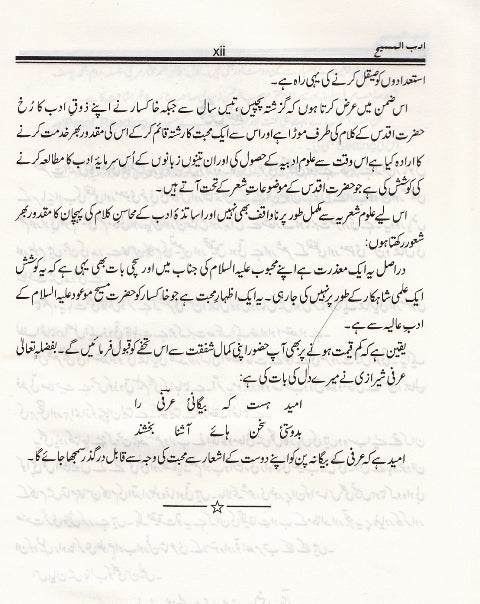 ادب المسیح
xii
استعدادوں کو صیقل کرنے کی یہی راہ ہے۔
اس ضمن میں عرض کرتا ہوں کہ گزشتہ پچیس، تیس سال سے جبکہ خاکسار نے اپنے ذوقِ ادب کا رُخ
حضرت اقدس کے کلام کی طرف موڑا ہے اور اس سے ایک محبت کا رشتہ قائم کر کے اس کی مقدور بھر خدمت کرنے
کا ارادہ کیا ہے اس وقت سے علوم ادبیہ کے حصول کی اور ان تینوں زبانوں کے اُس سرمایۂ ادب کا مطالعہ کرنے
کی کوشش کی ہے جو حضرت اقدس کے موضوعاتِ شعر کے تحت آتے ہیں۔
اس لیے علوم شعریہ سے مکمل طور پر ناواقف بھی نہیں اور اساتذۂ ادب کے محاسنِ کلام کی پہچان کا مقدور بھر
شعور رکھتا ہوں:
در اصل یہ ایک معذرت ہے اپنے محبوب علیہ السلام کی جناب میں اور سچی بات بھی یہی ہے کہ یہ کوشش
ایک علمی شاہکار کے طور پر نہیں کی جارہی۔ یہ ایک اظہارِ محبت ہے جو خاکسار کو حضرت مسیح موعود علیہ السلام کے
ادبِ عالیہ سے ہے۔
یقین ہے کہ کم قیمت ہونے پر بھی آپ حضور اپنی کمال شفقت سے اس تحفے کو قبول فرمائیں گے۔ بفضلہ تعالیٰ
عرفی شیرازی نے میرے دل کی بات کی ہے:
امید ہست کہ بیگانگیٔ عرفی را
بدوستیٔ سخن ہائے آشنا بخشند
امید ہے کہ عرفی کے بیگانہ پن کو اپنے دوست کے اشعار سے محبت کی وجہ سے قابل درگذر سمجھا جائے گا۔